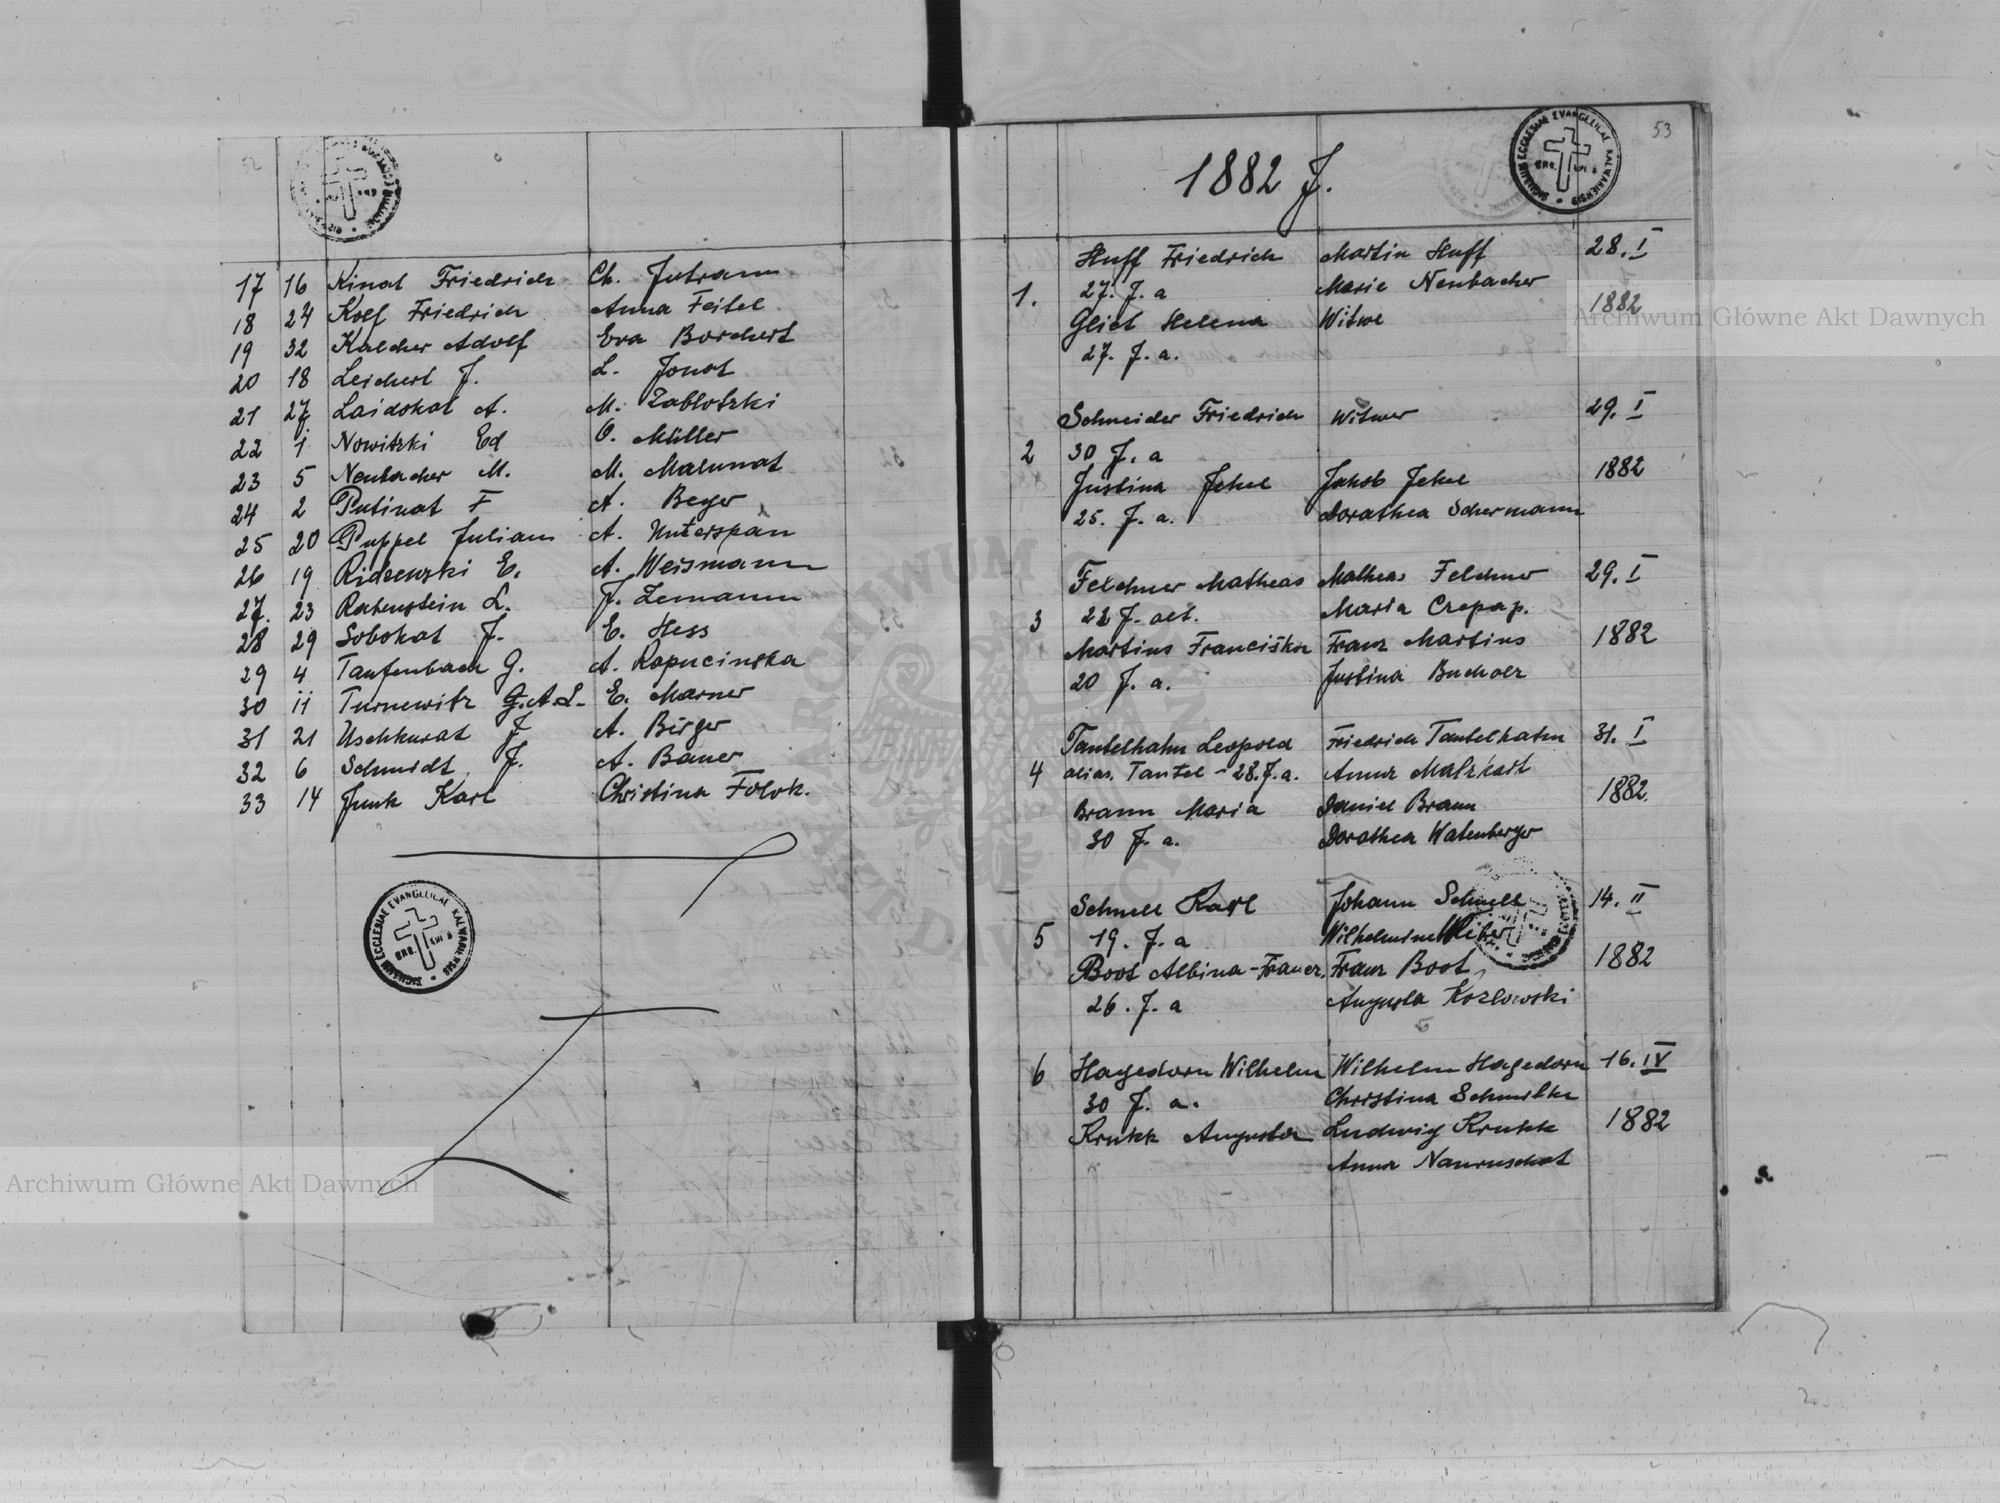 52
17 16 Kinat Friedrich Ch. Jutram
18 24 Kolf Friedrich Anna Feitel
19 32 Kalcher Adolf Eva Borchert
20 18 Leichert J. L. Jonat
21 27 Laidokat A. M. Zablotzki
22 1 Nowitzki Ed O. Müller
23 5 Neubacher M. M. Malunat
24 2 Putinat F A. Beyer
25 20 Puppel Julian A. Unterspan
26 19 Ridzewski E. A. Weismann
27. 23 Ratenstein L. J. Lemann
28 29 Sobokat J. E. Hess
29 4 Taufenbach G. A. Kapucinska
30 11 Turnewitz G. A. L. E. Marner
31 21 Uschkurat J A. Birger
32 6 Schmidt J. A. Bauer
33 14 Junk Karl Christina Folok.
SIGILLUM ECCLESIAE EVANGELICAE KALWARIENSIS
53
1882 J.
SIGILLUM ECCLESIAE EVANGELICAE KALWARIENSIS
Huff Friedrich Martin Huff 28. I
1. 27. J. a Marie Neubacher
Gliet Helena Witwe 1882
27. J. a.
Schneider Friedrich Witwer 29. I
2 30 J. a
Justina Jekel Jakob Jekel 1882
25. J. a. Dorathea Schermann
Felchner Matheas Matheas Felchner 29. I
3 22 J. alt. Maria Czepap.
Martins Franciška Franz Martins 1882
20 J. a. Justina Bucholz
Tantelhahn Leopold Friedrich Tantelhahn 31. I
4 alias. Tantel - 28. J. a. Anna Matzkait
Braun Maria Daniel Braun 1882.
30 J. a. Dorathea Watenberger
Schnell Karl Johann Schnell 14. II
5 19. J. a Wilhelmine
Boot Albina - Franz. Franz Boot 1882
26. J. a Augusta Kozlowski
6 Hagedorn Wilhelm Wilhelm Hagedorn 16. IV
30 J. a. Christina Schmitke
Krukk Augusta Ludwig Krukk 1882
Anna Nauruschat
Archiwum Główne Akt Dawnych
Archiwum Główne Akt Dawnych
ARCHIWUM GŁÓWNE AKT DAWNYCH